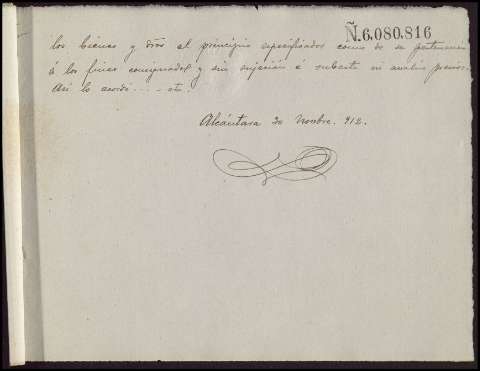 Ñ.6.080.816
los bienes y dros al principio especificados como de su pertenencia
á los fines consignados y sin sujeción á subasta ni avalúo previos.
Así lo acordó . . . . etc.
Alcántara 20 Novbre. 912.